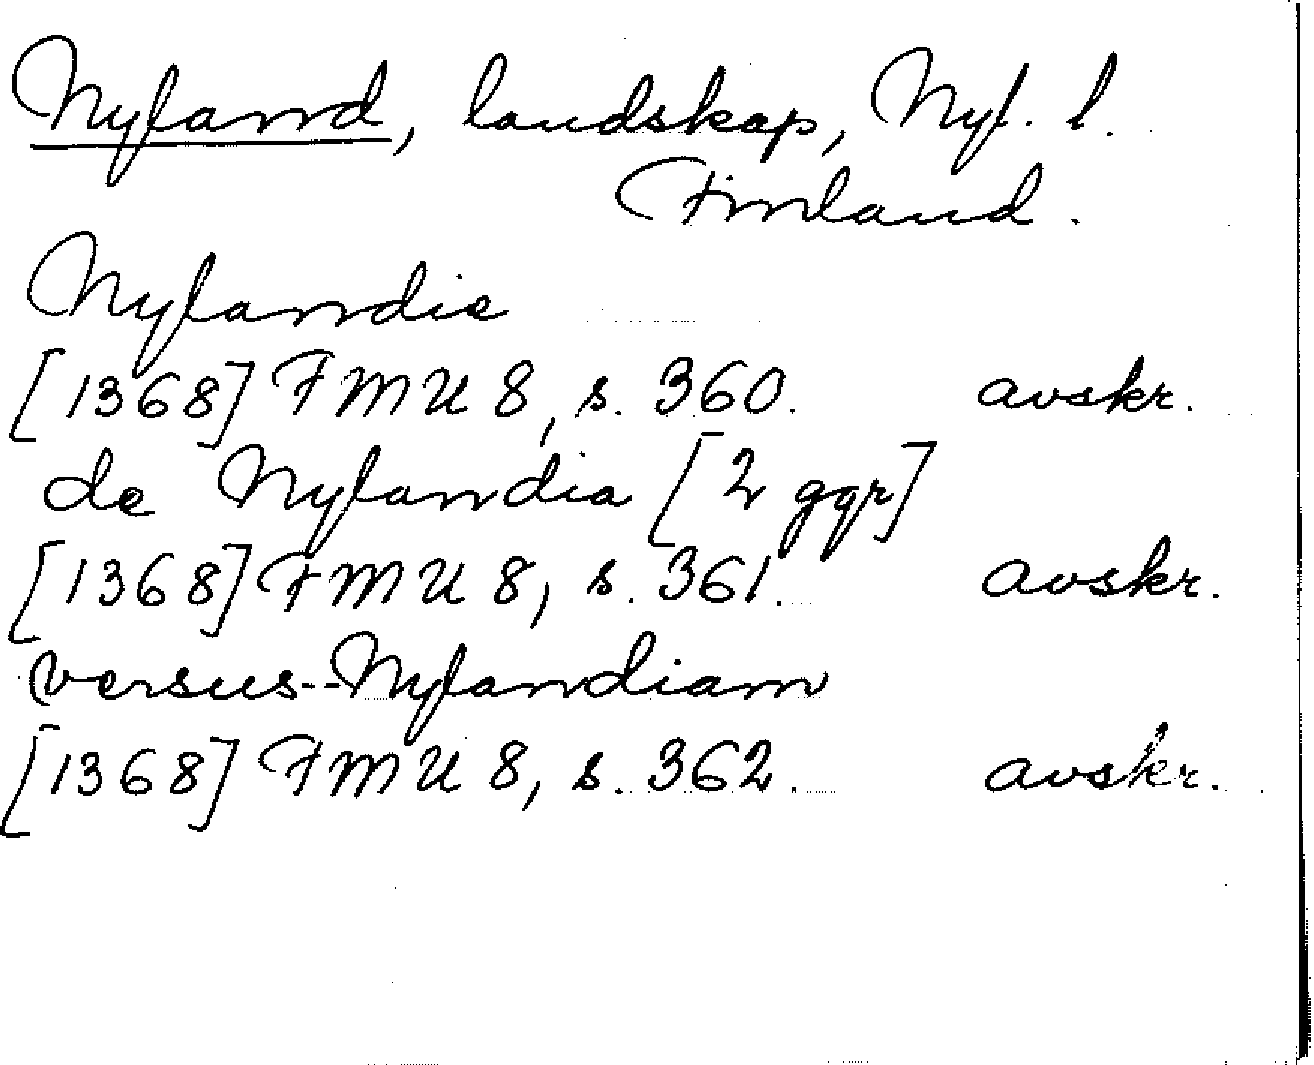 Nyland, landskap, Nyl. l.
Finland.
Nylandie
[1368] FMU 8, s. 360. avskr.
de Nylandia [2 ggr]
[1368] FMU 8, s. 361. avskr.
versus Nylandiam
[1368] FMU 8, s. 362. avskr.